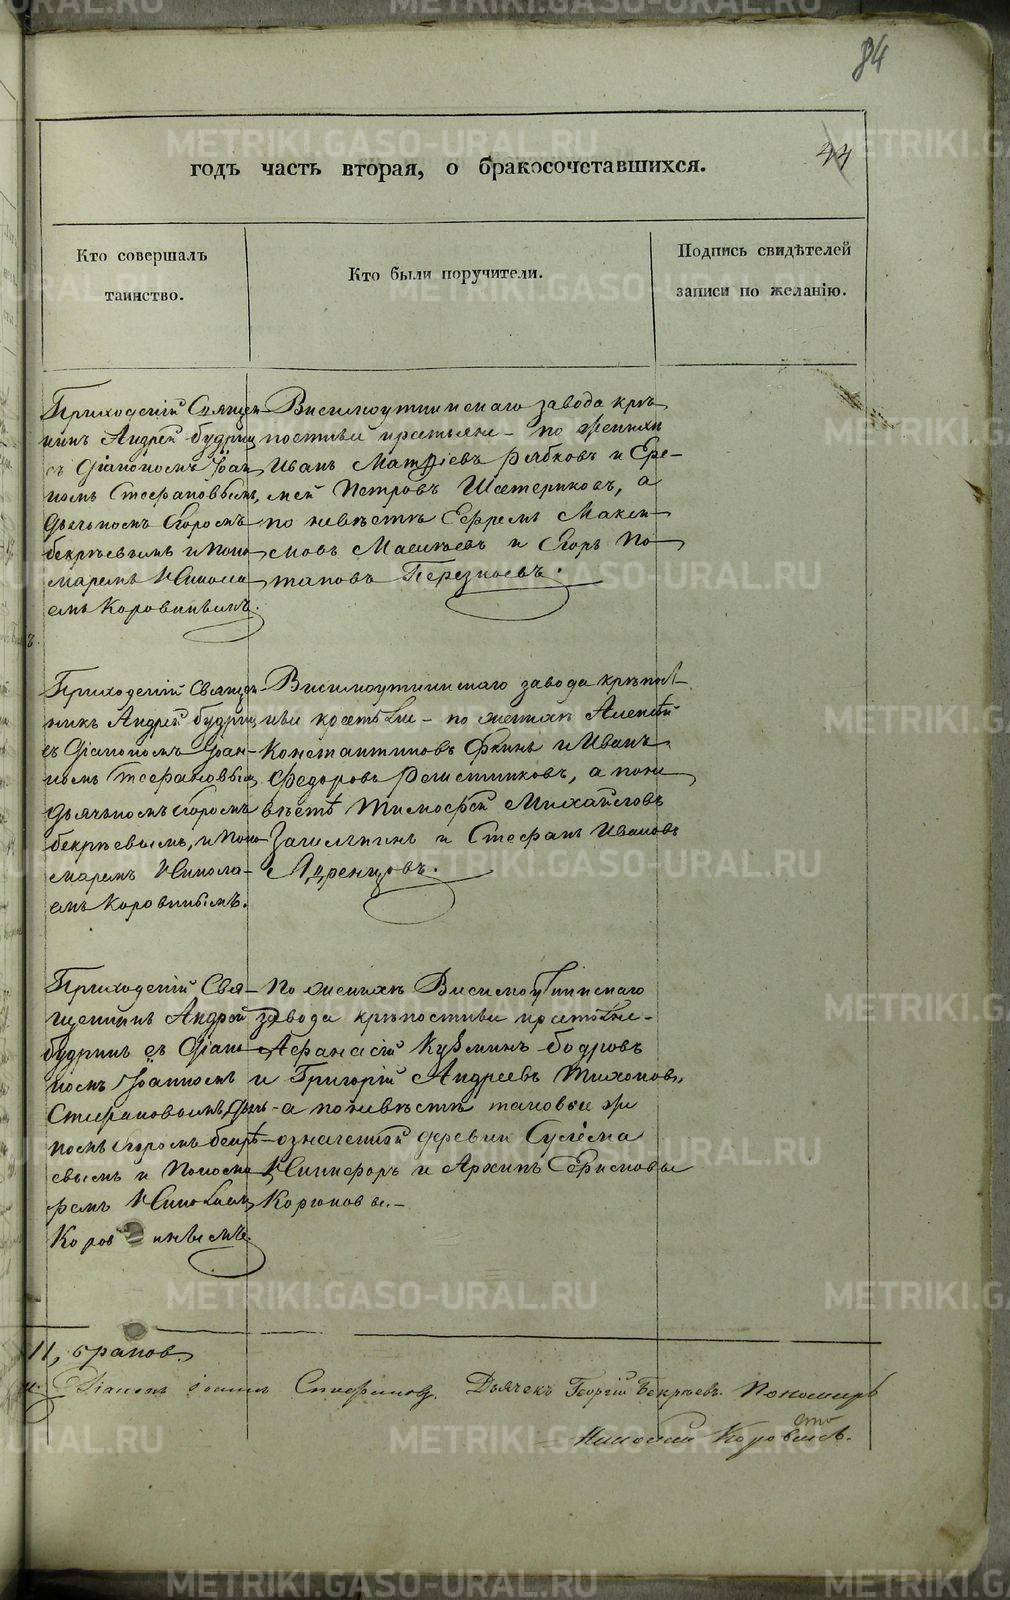 84
44
годъ часть вторая, о бракосочетавшихся.
Кто совершалъ
таинство.
Кто были поручители.
Подпись свидѣтелей
записи по желанію.
Приходскій Священ-
никъ Андрей Будрин
съ Діакономъ Іоан
номъ Стефановымъ,
дьячкомъ Егоромъ
Бекрѣевымъ и Поно
маремъ Никола
емъ Коровинымъ.
Висимоуткинскаго завода крѣ-
постные крестьяне – по женихѣ
Иванъ Матѳіевъ Рябковъ и Ере-
мей Петровъ Шестериковъ, а
по невѣстѣ Ефремъ Макси-
мовъ и Егоръ По-
таповъ
Приходскій Священ-
никъ Андрей Будрин
съ Діакономъ Іоан-
номъ Стефановым,
дьячкомъ Егоромъ
Бекрѣевымъ, и Поно
маремъ Никола-
емъ Коровинымъ.
Висимоуткинскаго завода крѣпост-
ные крестьяне – по женихѣ Алексѣй
Константиновъ и Иванъ
Федоровъ Решетниковъ, а по не
вѣстѣ Тимофей Михайловъ
и Стефанъ Ивановъ
Приходскій Свя-
щенникъ Андрей
Будринъ съ Діако
номъ Іоанномъ
Стефановымъ, Дья-
комъ Егоромъ Бекрѣ-
евымъ и Понома
ремъ Николаем
Коровинымъ.
По женихѣ Висимоуткинскаго
завода крѣпостные крестьяне –
Афанасій Кузминъ Бодровъ
и Григорій Андреевъ Тихоновъ,
а по невѣстѣ таковые же
означенной деревни Сулема
Никифоръ и Архипъ Ефимовы
Корюковы. –
11, браковъ.
Діаконъ Іоаннъ Стефановъ. Дьячекъ Георгій Бекрѣевъ. Пономарь
Николай Коровинъ.
METRIKI.GASO-URAL.RU